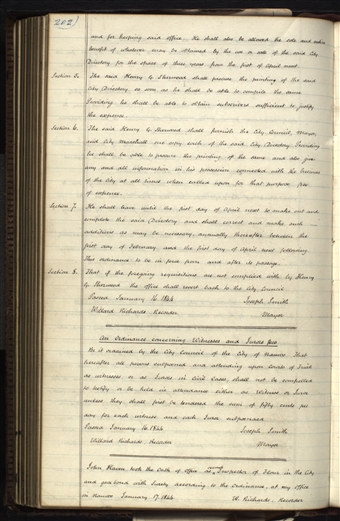 202)
and for keeping said office. He shall also be allowed the sole and entire
benefit of whatever may be obtained by the use or sale of the said City
Directory for the space of three years from the first of April next.
Section 5. The said Henry G. Sherwood shall procure the printing of the said
City Directory so soon as he shall be able to complete the same
Providing he shall be able to obtain subscribers sufficient to justify
the expense.
Section 6. The said Henry G. Sherwood shall furnish the City Council, Mayor
and City Marshall one copy each of the said City Directory, Providing
he shall be able to procure the printing of the same and also give
any and all information in his possession connected with the business
of the City at all times when called upon for that purpose free
of expense.
Section 7. He shall have until the first day of April next to make out and
complete the said Directory and shall correct and make such
additions as may be necessary, annually thereafter between the
first day of February and the first day of April next following.
This ordinance to be in force from and after its passage.
Section 8. That if the foregoing requisitions are not complied with by Henry
G. Sherwood the office shall revert back to the City Council
Passed January 16. 1844 Joseph Smith
Willard Richards. Recorder Mayor
An Ordinance concerning Witnesses and Jurors fees
Be it ordained by the City Council of the City of Nauvoo, That
hereafter all persons subpoened and attending upon Courts of Suit
as witnesses, or as Jurors in Civil Cases, shall not be compelled
to testify or be held in attendance either as Witness or Juror
unless they shall first be tendered the sum of fifty cents per
day for each witness and each Juror subpoenaed
Passed January 16. 1844 Joseph Smith
Willard Richards. Recorder Mayor
took the Oath of office as Inspector of Flour in the City
and gave bond with Surety according to the Ordinance, at my office
in Nauvoo January 17. 1844 W. Richards. Recorder